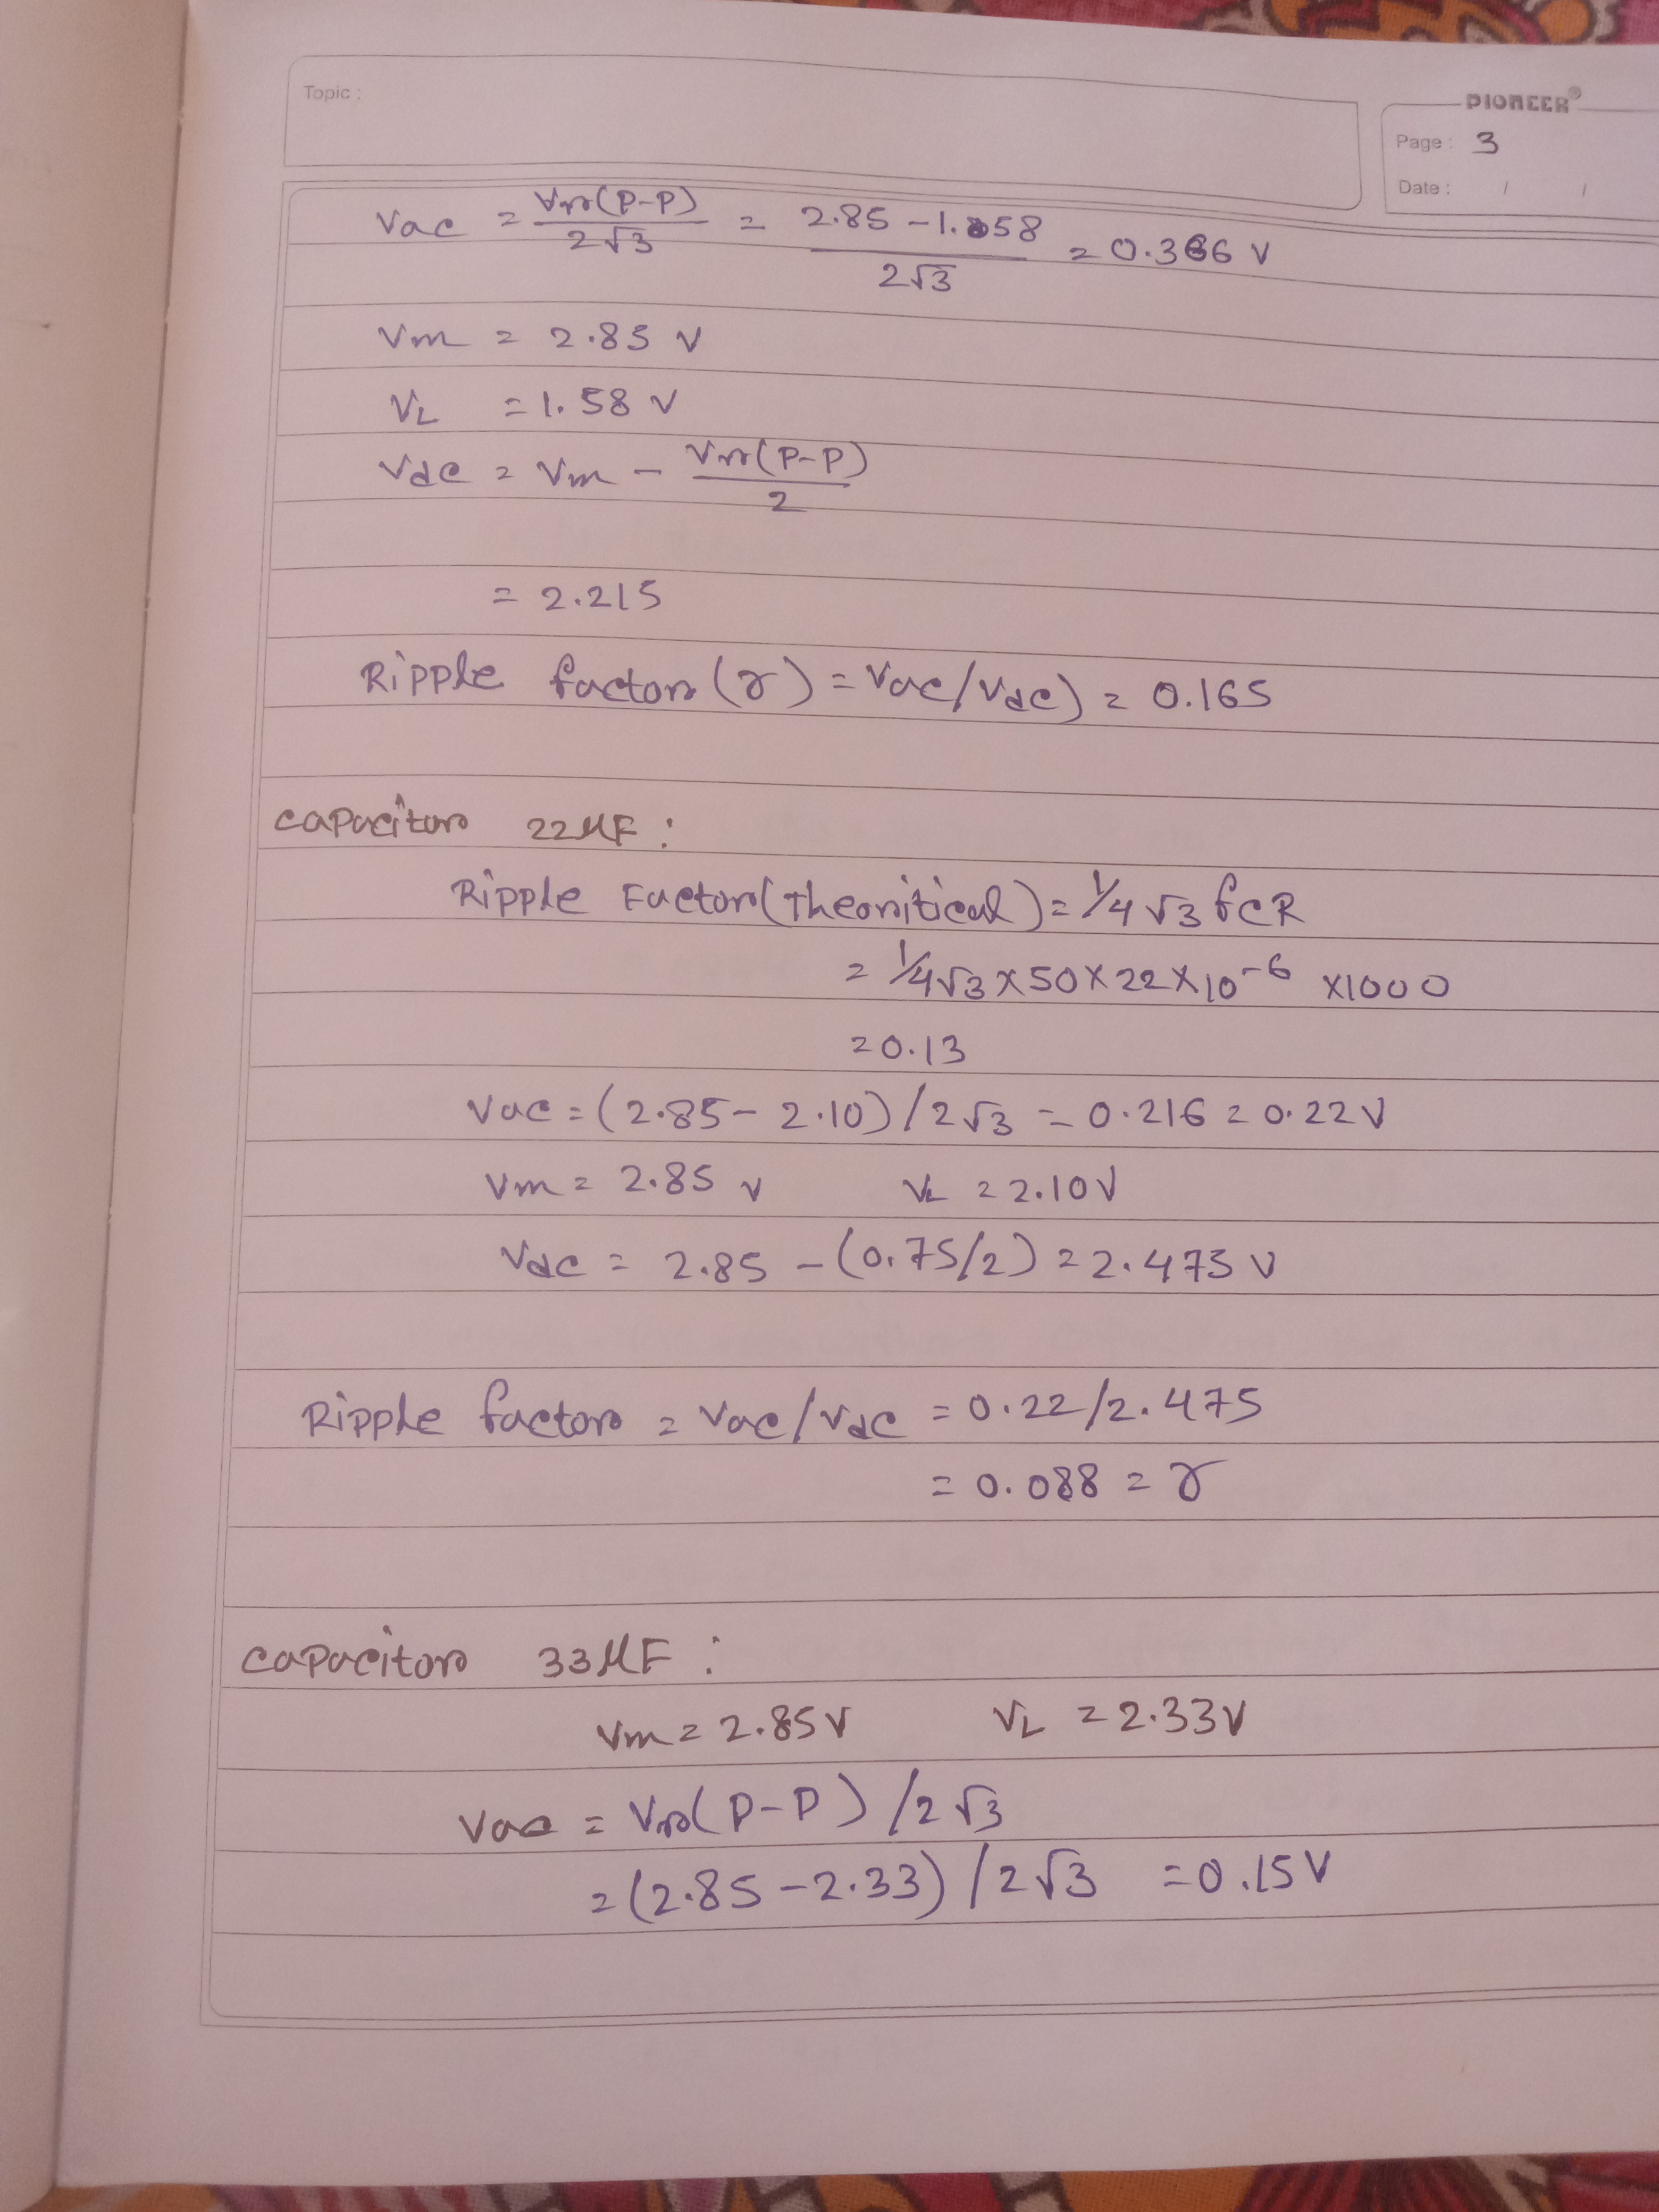 Topic :
PIONEER®
Page : 3
Date : / /
Vac = Vr(P-P)/2√3 = 2.85 - 1.58/2√3 = 0.366 V
Vm = 2.85 V
VL = 1.58 V
Vdc = Vm - Vr(P-P)/2
= 2.215
Ripple factor (γ) = Vac/Vdc) = 0.165
capacitor 22μF :
Ripple Factor (Theoritical) = 1/4√3 fCR
= 1/4√3 × 50 × 22 × 10^-6 × 1000
= 0.13
Vac = (2.85 - 2.10) / 2√3 = 0.216 = 0.22 V
Vm = 2.85 V VL = 2.10 V
Vdc = 2.85 - (0.75/2) = 2.475 V
Ripple factor = Vac/Vdc = 0.22/2.475
= 0.088 = γ
capacitor 33μF :
Vm = 2.85 V VL = 2.33 V
Vac = Vr(P-P) / 2√3
= (2.85 - 2.33) / 2√3 = 0.15 V